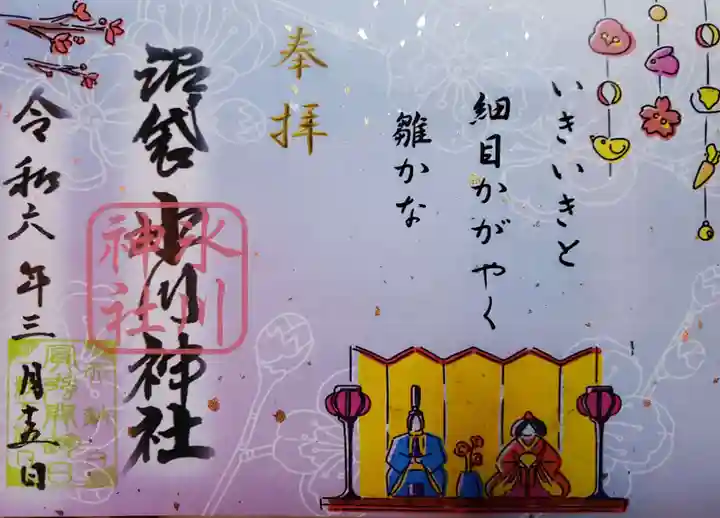 いきいきと
細目かがやく
雛かな
奉拝
沼袋氷川神社
氷川
神社
令和六年三月十五日